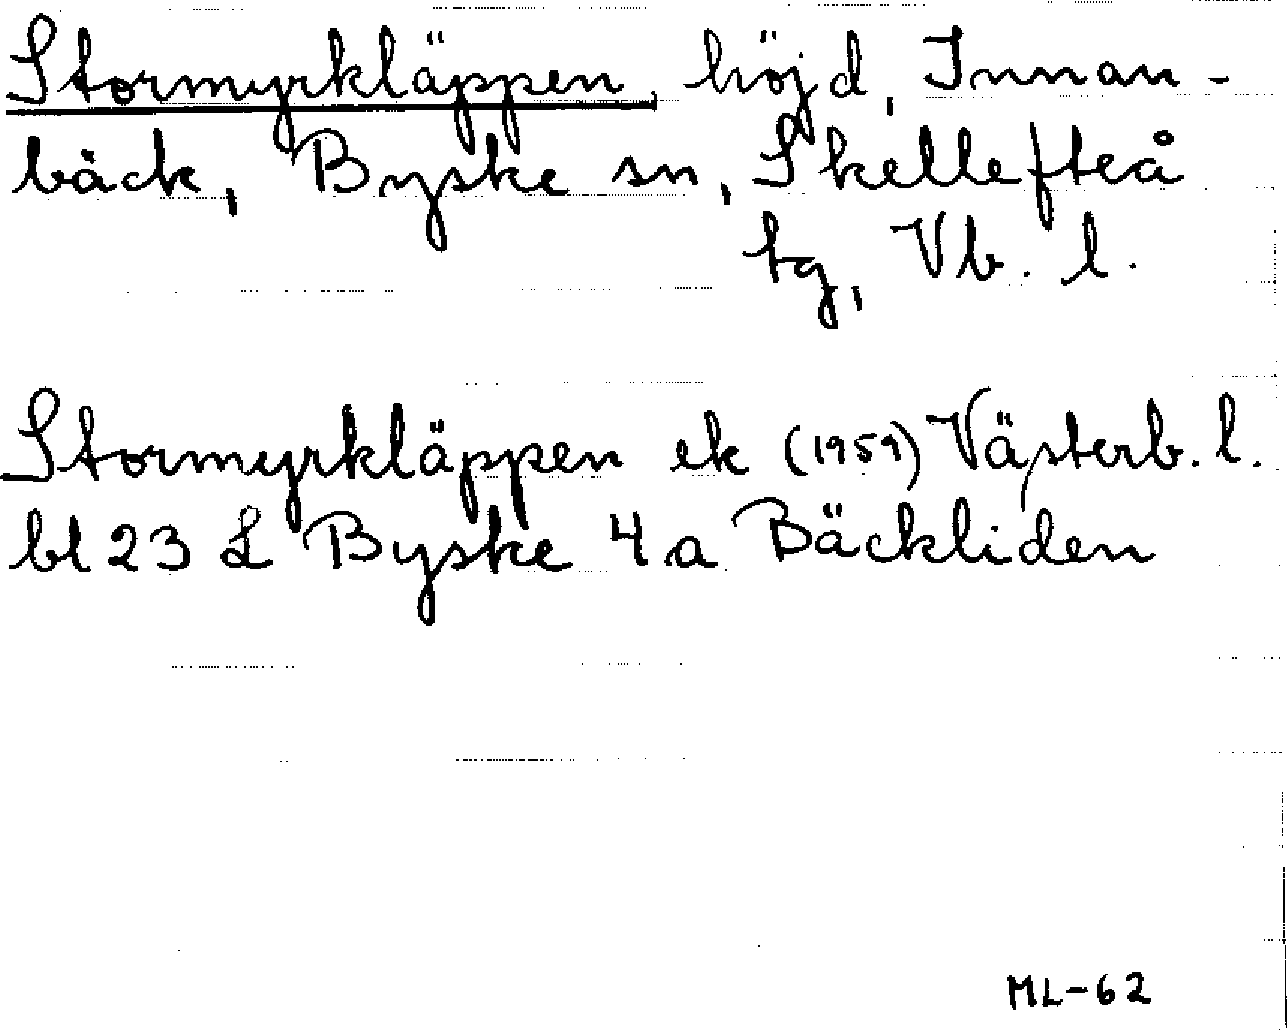 Stormyrkläppen, höjd, Innan-
bäck, Byske sn, Skellefteå
tg, Vb. l.
Stormyrkläppen ek (1959) Västerb. l.
bl 23 L Byske 4 a Bäckliden
ML-62